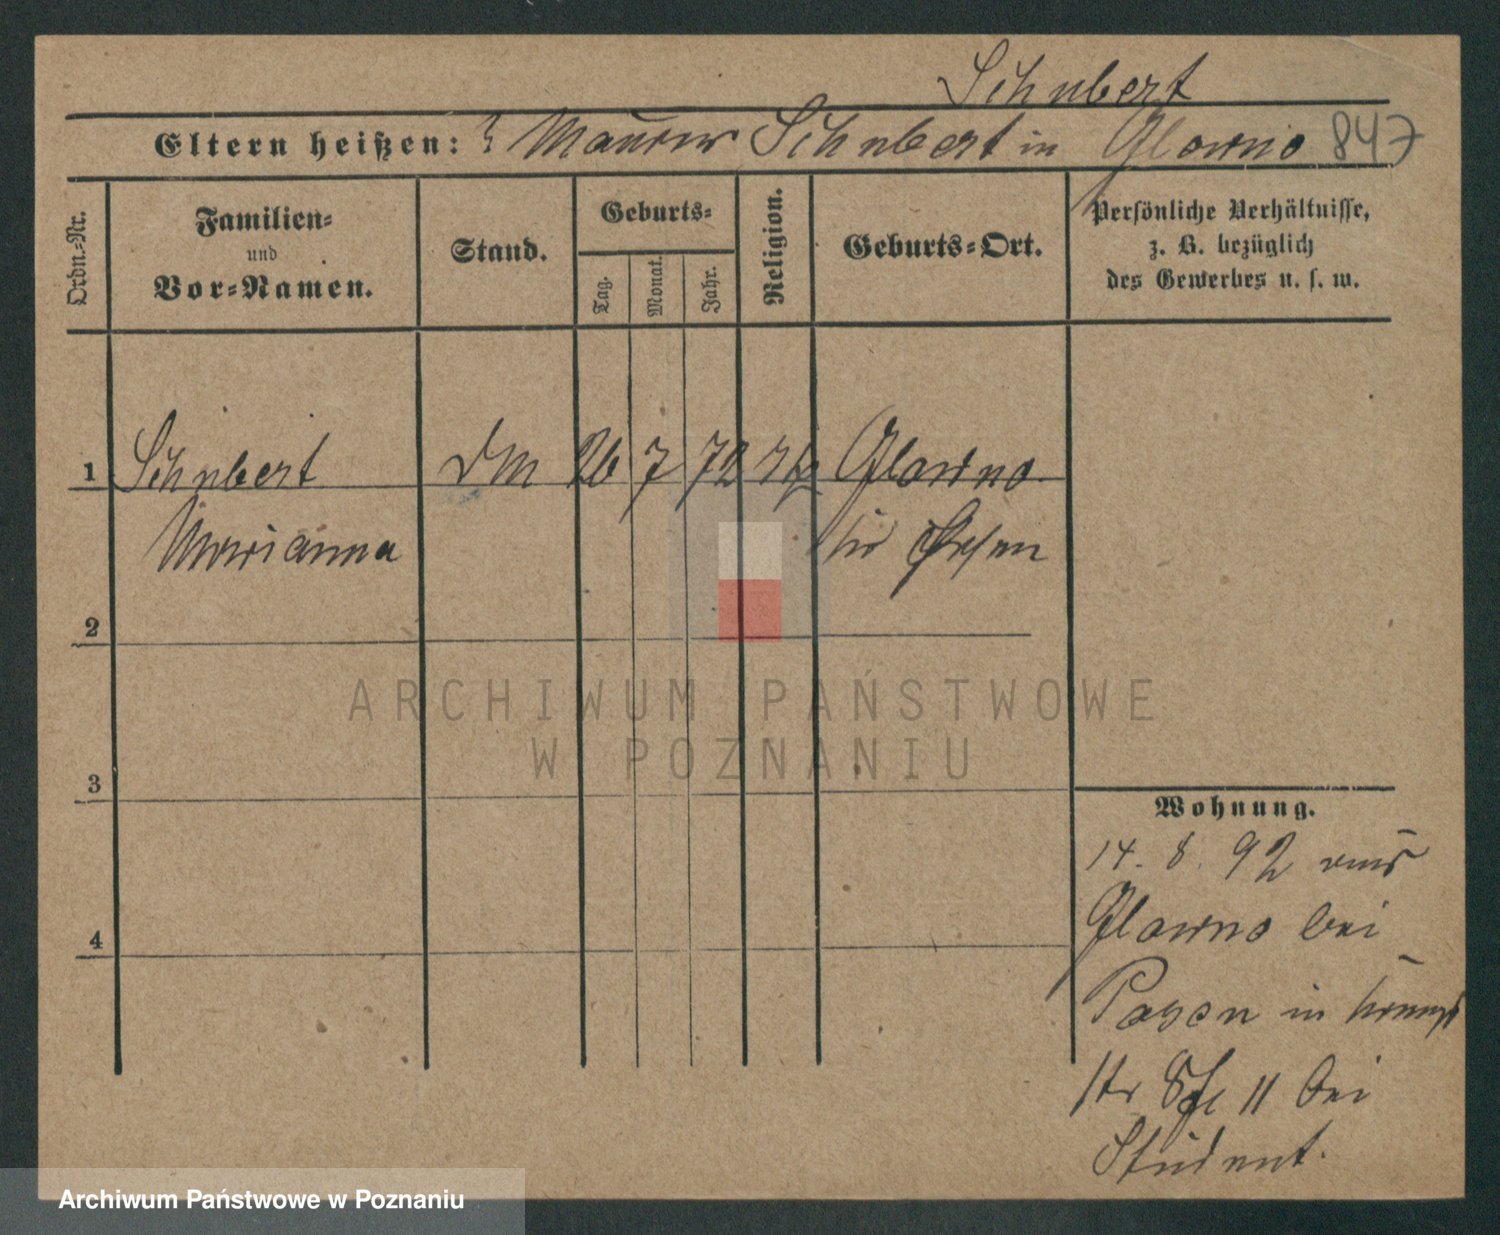 Schubert
Eltern heißen: Maurer Schubert in Glowno 847
Ordn.-Nr.
Familien-
und
Vor-Namen.
Stand.
Geburts-
Tag.
Monat.
Jahr.
Religion.
Geburts-Ort.
Persönliche Verhältnisse,
z. B. bezüglich
des Gewerbes u. s. w.
1 Schubert DM 26 7 72 Glowno
Marianna Posen
2
3
4
ARCHIWUM PAŃSTWOWE
W POZNANIU
Wohnung.
14. 8. 92 aus
Glowno bei
Posen in
Str 8 II bei
Student.
Archiwum Państwowe w Poznaniu